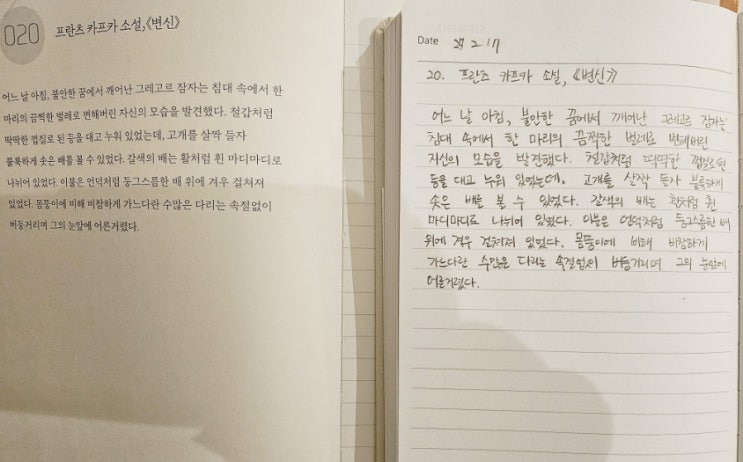 020 프란츠 카프카 소설,《변신》
어느 날 아침, 불안한 꿈에서 깨어난 그레고르 잠자는 침대 속에서 한
마리의 끔찍한 벌레로 변해버린 자신의 모습을 발견했다. 철갑처럼
딱딱한 껍질로 된 등을 대고 누워 있었는데, 고개를 살짝 들자
불룩하게 솟은 배를 볼 수 있었다. 갈색의 배는 활처럼 휜 마디마디로
나뉘어 있었다. 이불은 언덕처럼 둥그스름한 배 위에 겨우 걸쳐져
있었다. 몸뚱이에 비해 비참하게 가느다란 수많은 다리는 속절없이
버둥거리며 그의 눈앞에 어른거렸다.
Date 2 17
20. 프란츠 카프카 소설, 《변신》
어느 날 아침, 불안한 꿈에서 깨어난 그레고르 잠자는
침대 속에서 한 마리의 끔찍한 벌레로 변해버린
자신의 모습을 발견했다. 철갑처럼 딱딱한 껍질로 된
등을 대고 누워 있었는데, 고개를 살짝 들자 불룩하게
솟은 배를 볼 수 있었다. 갈색의 배는 활처럼 휜
마디마디로 나뉘어 있었다. 이불은 언덕처럼 둥그스름한 배
위에 겨우 걸쳐져 있었다. 몸뚱이에 비해 비참하게
가느다란 수많은 다리는 속절없이 버둥거리며 그의 눈앞에
어른거렸다.